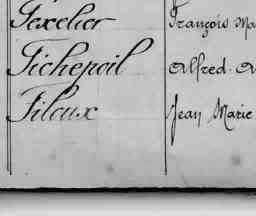 Texelier François Ma
Fichepoil Alfred. A
Filoux Jean Marie